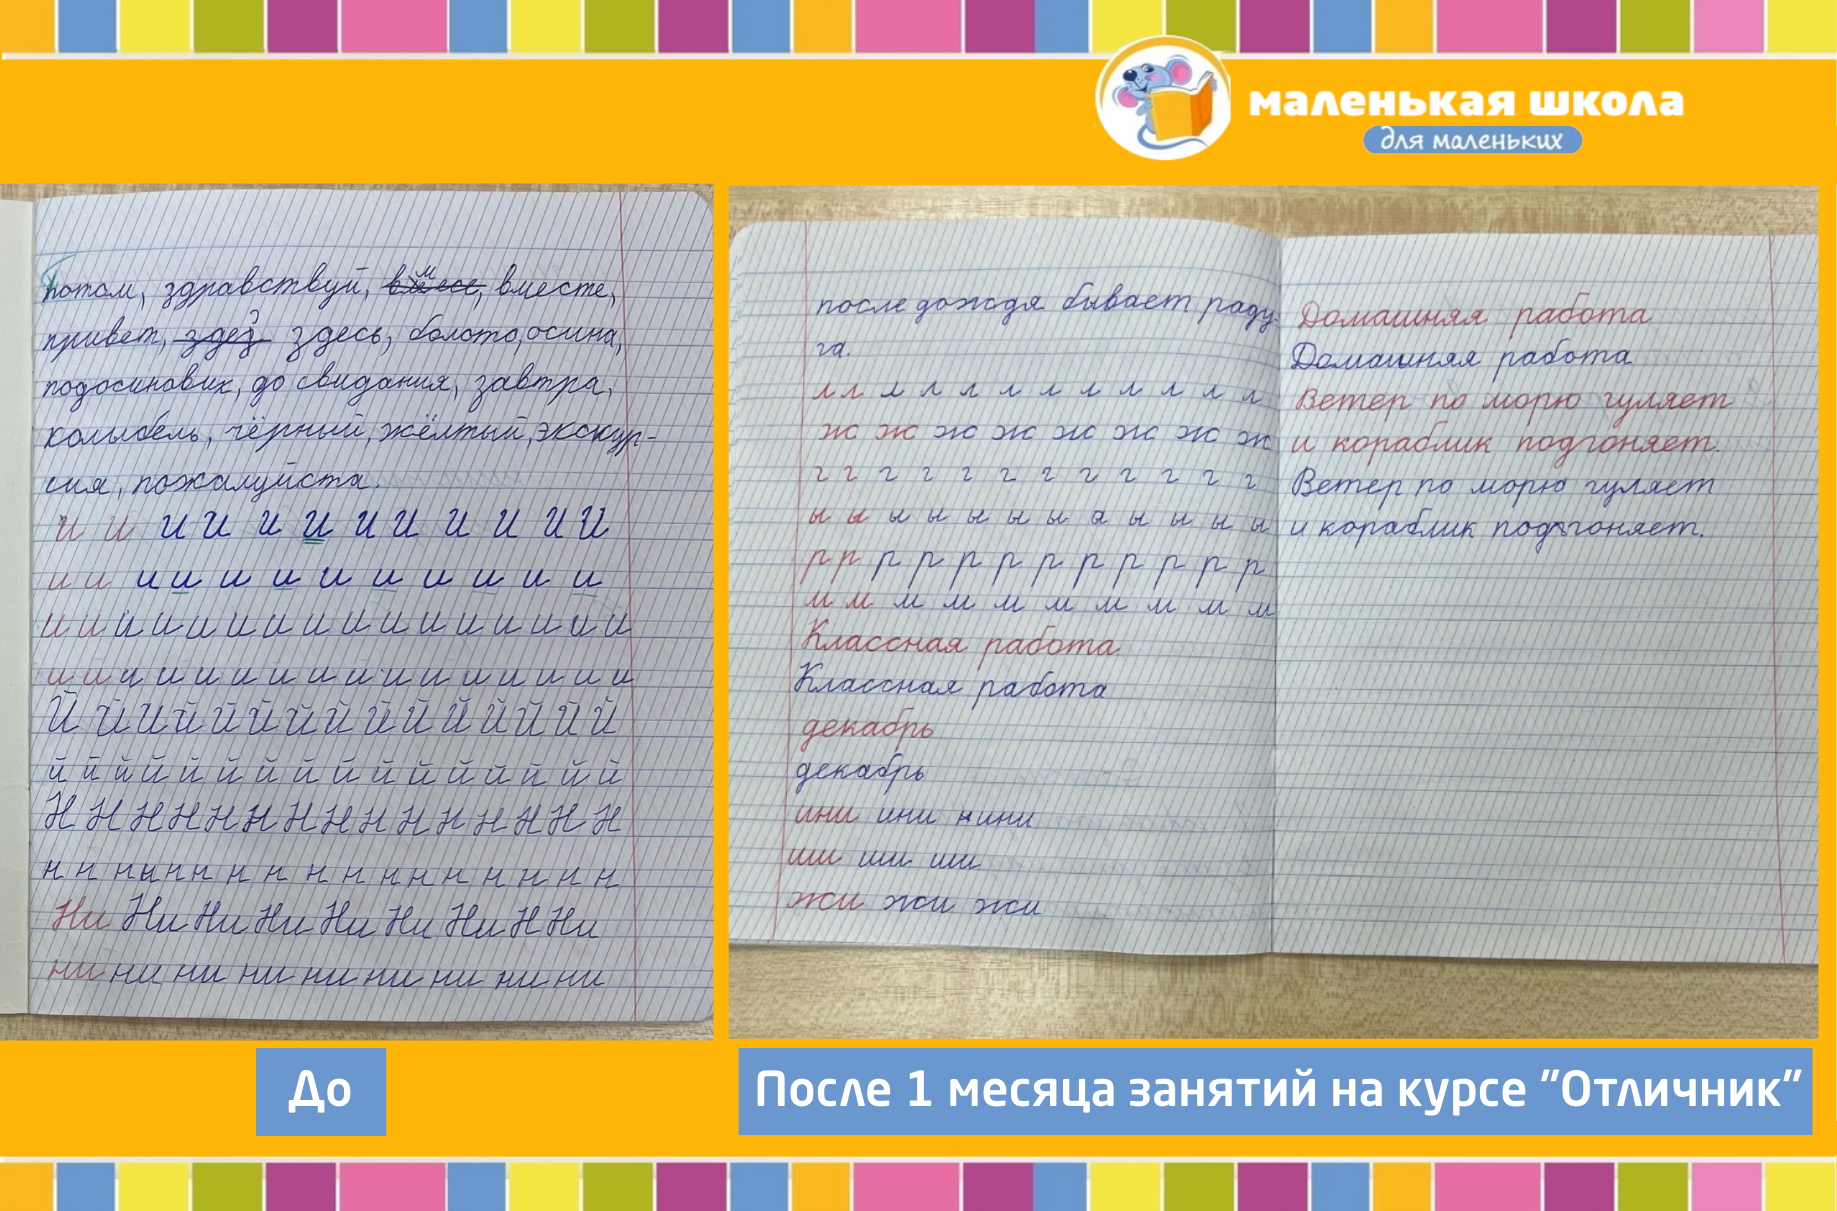 маленькая школа
для маленьких
Потом, здравствуй, вместе,
привет, здез здесь, болото, осина,
подосиновик, до свидания, завтра,
колыбель, чёрный, жёлтый, экскур-
сия, пожалуйста.
И И И И И И И И И И И И
и и и и и и и и и и и и
И И И И И И И И И И И И И И И И
и и и и и и и и и и и и и и и
Й Й Й Й Й Й Й Й Й Й Й Й Й Й Й
й й й й й й й й й й й й й й й
Н Н Н Н Н Н Н Н Н Н Н Н Н Н Н
н н н н н н н н н н н н н н н н
Ни Ни Ни Ни Ни Ни Ни Н Ни
ни ни ни ни ни ни ни ни ни
после дождя бывает раду-
га.
л л л л л л л л л л л л
ж ж ж ж ж ж ж ж
г г г г г г г г г г г г
ы ы ы ы ы ы ы ы ы ы ы ы
р р р р р р р р р р р р
м м м м м м м м м м
Классная работа.
Классная работа
декабрь
декабрь
ини ини нини
ши ши ши
жи жи жи
Домашняя работа
Домашняя работа
Ветер по морю гуляет
и кораблик подгоняет.
Ветер по морю гуляет
и кораблик подгоняет.
До
После 1 месяца занятий на курсе "Отличник"